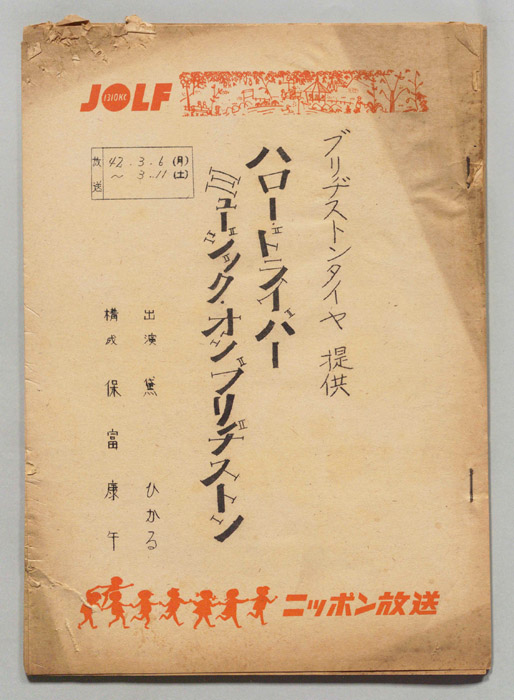 JOLF
1310KC
放送
42.3.6(月)
～3.11(土)
ブリヂストンタイヤ 提供
ハロードライバー
ミュージック・オン・ブリヂストン
出演 黛 ひかる
構成 保富康午
ニッポン放送